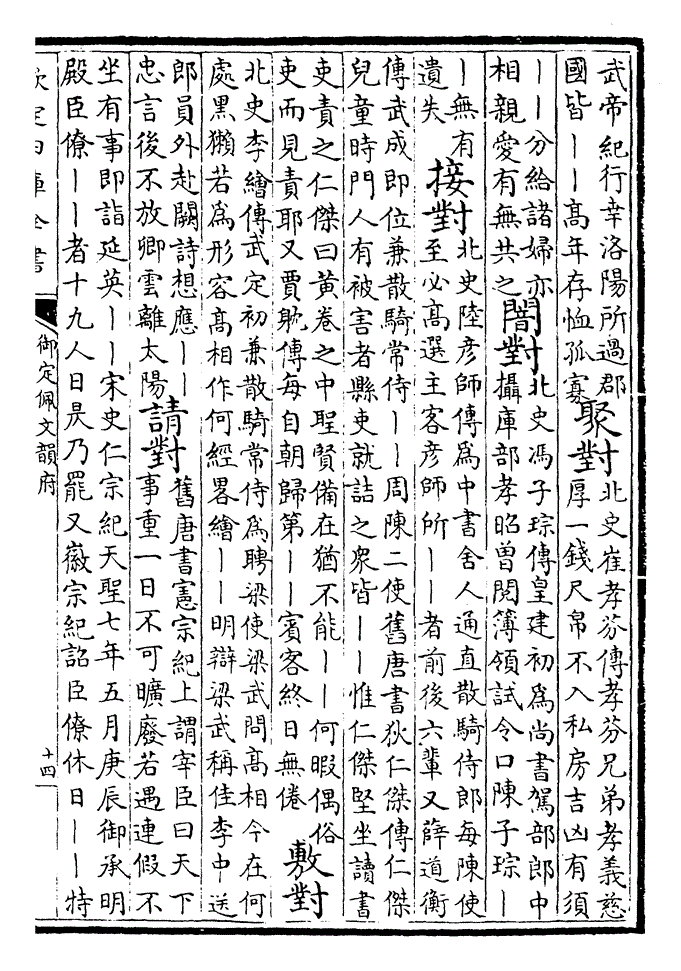 武帝紀行幸洛陽所過郡
國皆——高年存恤孤寡
聚對
北史崔孝芬傳孝芬兄弟孝義慈
厚一錢尺帛不入私房吉凶有須
——分給諸婦亦
相親愛有無共之
闇對
北史馮子琮傳皇建初為尚書駕部郎中
攝庫部孝昭曾閱簿領試令口陳子琮—
—無有
遺失
接對
北史陸彦師傳為中書舍人通直散騎侍郎每陳使
至必高選主客彦師所——者前後六輩又薛道衡
傳武成即位兼散騎常侍——周陳二使舊唐書狄仁傑傳仁傑
兒童時門人有被害者縣吏就詰之衆皆——惟仁傑堅坐讀書
吏責之仁傑曰黄卷之中聖賢備在猶不能——何暇偶俗
吏而見責耶又賈耽傳每自朝歸第——賓客終日無倦
敷對
北史李繪傳武定初兼散騎常侍為聘梁使梁武問高相今在何
處黑獺若為形容高相作何經畧繪——明辯梁武稱佳李中送
郎員外赴闕詩想應——
忠言後不放卿雲離太陽
請對
舊唐書憲宗紀上謂宰臣曰天下
事重一日不可曠廢若遇連假不
坐有事即詣延英——宋史仁宗紀天聖七年五月庚辰御承明
殿臣僚——者十九人日昃乃罷又徽宗紀詔臣僚休日——特
欽定四庫全書
御定佩文韻府
十四